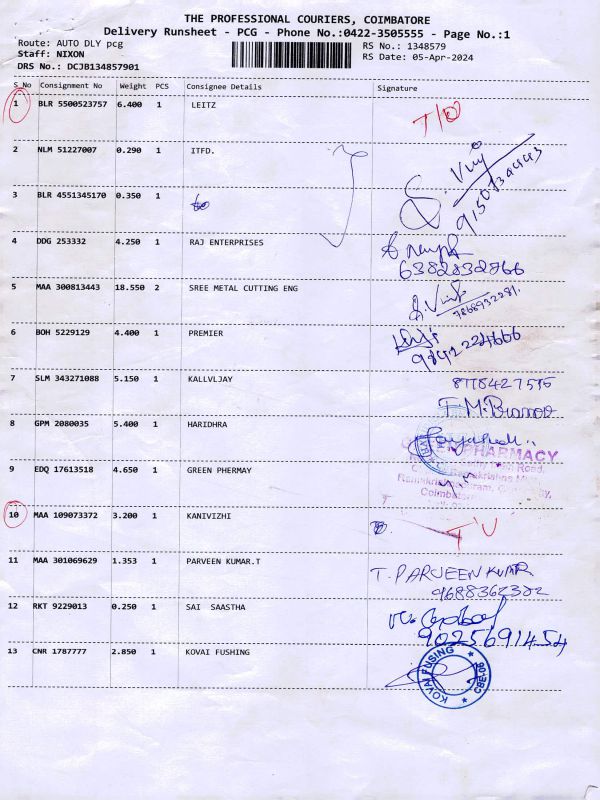 THE PROFESSIONAL COURIERS, COIMBATORE
Delivery Runsheet - PCG - Phone No.:0422-3505555 - Page No.:1
Route: AUTO DLY pcg RS No.: 1348579
Staff: NIXON RS Date: 05-Apr-2024
DRS No.: DCJB134857901
S_No Consignment No Weight PCS Consignee Details Signature
1 BLR 5500523757 6.400 1 LEITZ
2 NLM 51227007 0.290 1 ITFD.
3 BLR 4551345170 0.350 1
4 DDG 253332 4.250 1 RAJ ENTERPRISES
6382832866
5 MAA 300813443 18.550 2 SREE METAL CUTTING ENG
6 BOH 5229129 4.400 1 PREMIER
9842224666
7 SLM 343271088 5.150 1 KALLVLJAY
8 GPM 2080035 5.400 1 HARIDHRA
PHARMACY
9 EDQ 17613518 4.650 1 GREEN PHERMAY
10 MAA 109073372 3.200 1 KANIVIZHI
11 MAA 301069629 1.353 1 PARVEEN KUMAR.T
T. PARVEEN KUMAR
9688362382
12 RKT 9229013 0.250 1 SAI SAASTHA
9025691454
13 CNR 1787777 2.850 1 KOVAI FUSHING
KOVAI FUSING
CBE-06